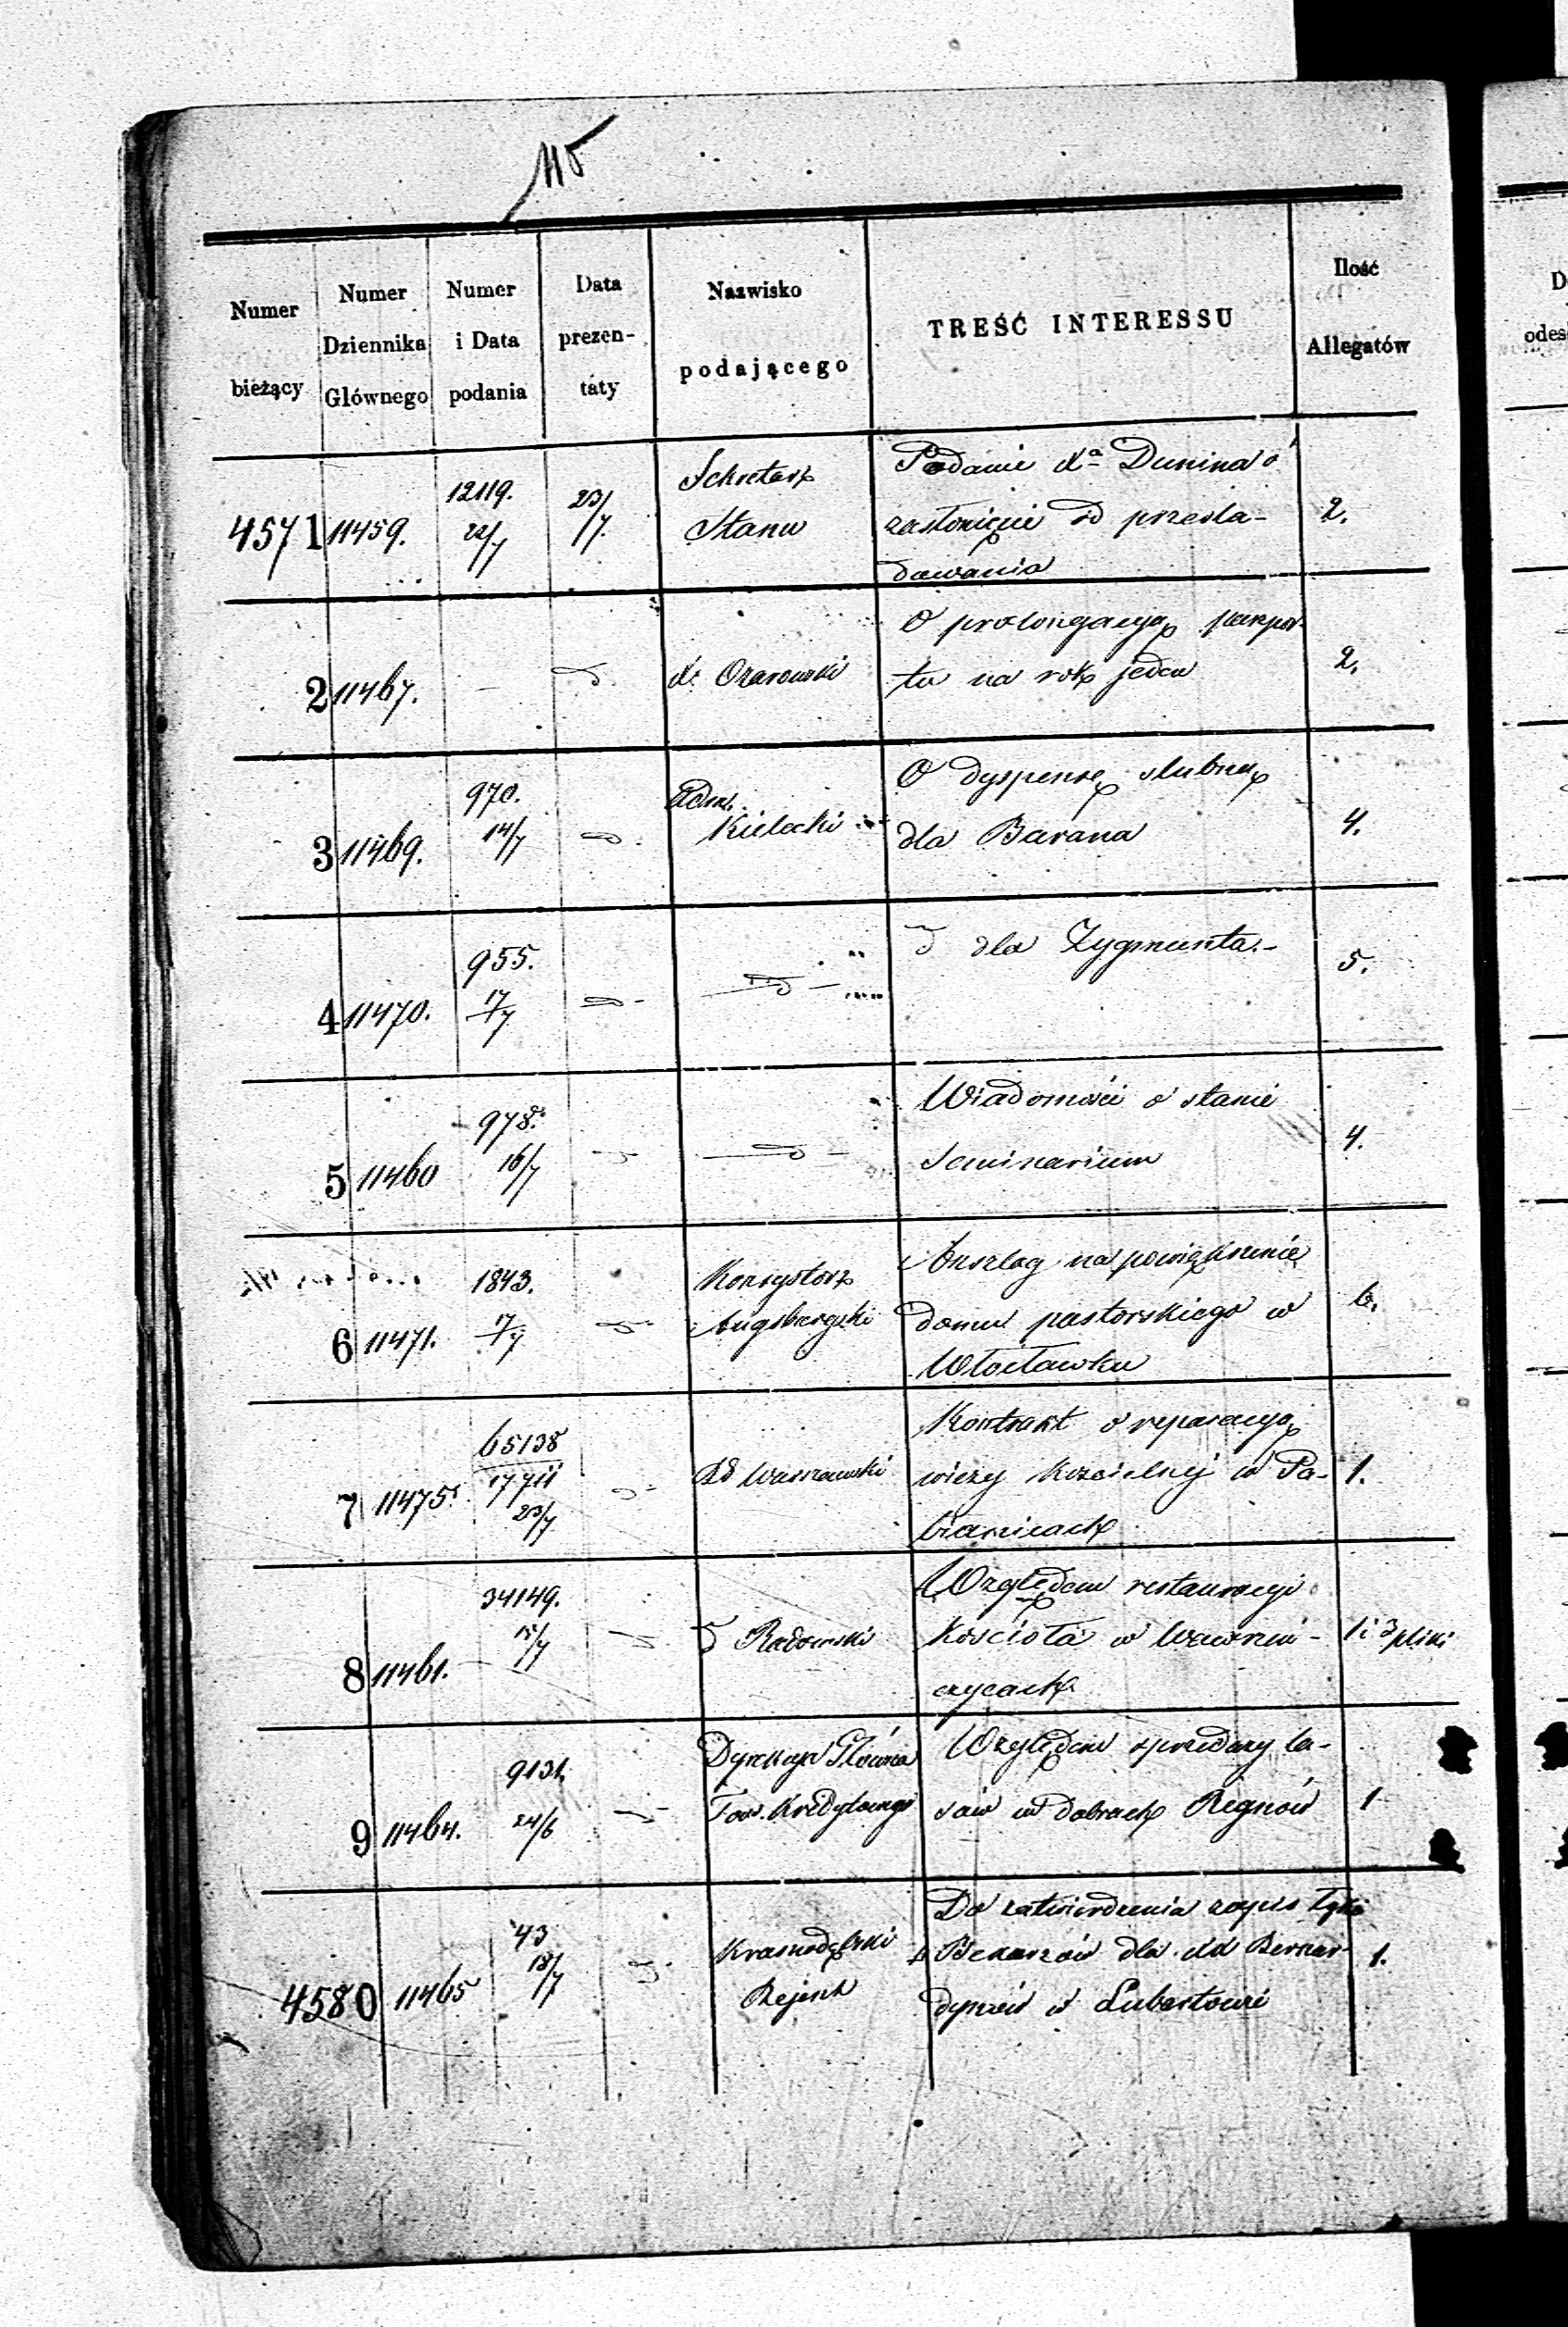 115
Numer bieżący | Numer Dziennika Głównego | Numer i Data podania | Data prezen-taty | Nazwisko podającego | TREŚĆ INTERESSU | Ilość Allegatów
4571 | 11459. | 12119. 22/7 | 23/7. | Sekretarz Stanu | Podanie Xa Dunina o
zasłonięcie od przesla-
dowania | 2.
2 | 11467. | — | d. | X. Ożarowski | O prolongacyą paszpor-
tu na rok jeden | 2.
3 | 11469. | 970. 14/7 | d. | Adm. Kielecki | O dyspensę slubną
dla Barana | 4.
4 | 11470. | 955. 17/7 | d - | d - | d dla Zygmunta.- | 5.
5 | 11460 | 978. 16/7 | d | d - | Wiadomości o stanie
Seminarium | 4.
6 | 11471. | 1843. 17/7 | d | Konsystorz Augsburgski | Anszlag na powiększenie
domu pastorskiego w
Włocławku | 6.
7 | 11475. | 65138 17711 23/7 | d - | Rd Warszawski | Kontrakt o reparacyą
wieży kościelnéj w Pa-
bianicach | 1.
8 | 11461. | 34149. 15/7 | d | d Radomski | Względem restauracyi
Kościoła w Wawrzeń-
czycach | 1 i 3 pliki
9 | 11464. | 9131. 24/6 | d | Dyrekcya Główna Tow. Kredytowego | Względem sprzedaży la-
sów w dobrach Regnów | 1
4580 | 11465 | 43 18/7 | d. | Krasnodębski Rejent | Do zatwierdzenia zapis
Bekarzów dla XX Bernar-
dynów w Lubartowie | 1.
D
odes